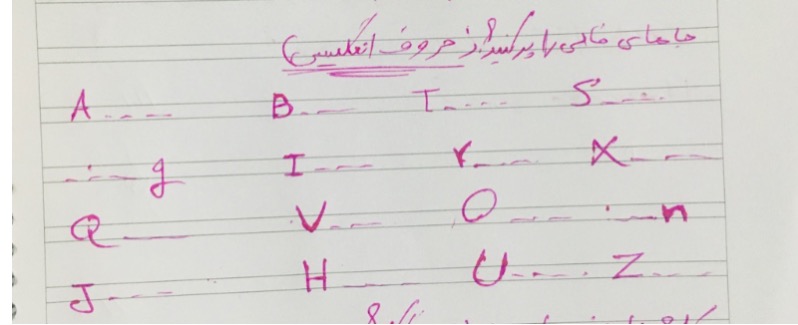 جاهای خالی را پر کنید؟ از حروف انگلیسی)
A ---- B --- T ---- S ----
---- g I --- r ---- X ----
Q ---- V --- O ---- ---- n
J ---- H ---- U ---- Z ----